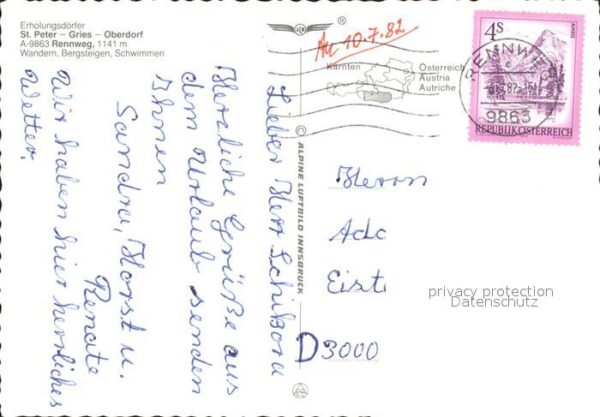 Erholungsdörfer
St. Peter – Gries – Oberdorf
A-9863 Rennweg, 1141 m
Wandern, Bergsteigen, Schwimmen
An 10.7.82
Kärnten
Österreich
Austria
Autriche
4 S
RENNWEG
9863
REPUBLIK ÖSTERREICH
© ALPINE LUFTBILD INNSBRUCK
Lieber Herr Schiboru
Herzliche Grüße aus
dem Urlaub senden
Ihnen
Sandra, Horst u.
Renate
Wir haben hier herrliches
Wetter.
Herrn
Ado
Eist
D 3000
privacy protection
Datenschutz